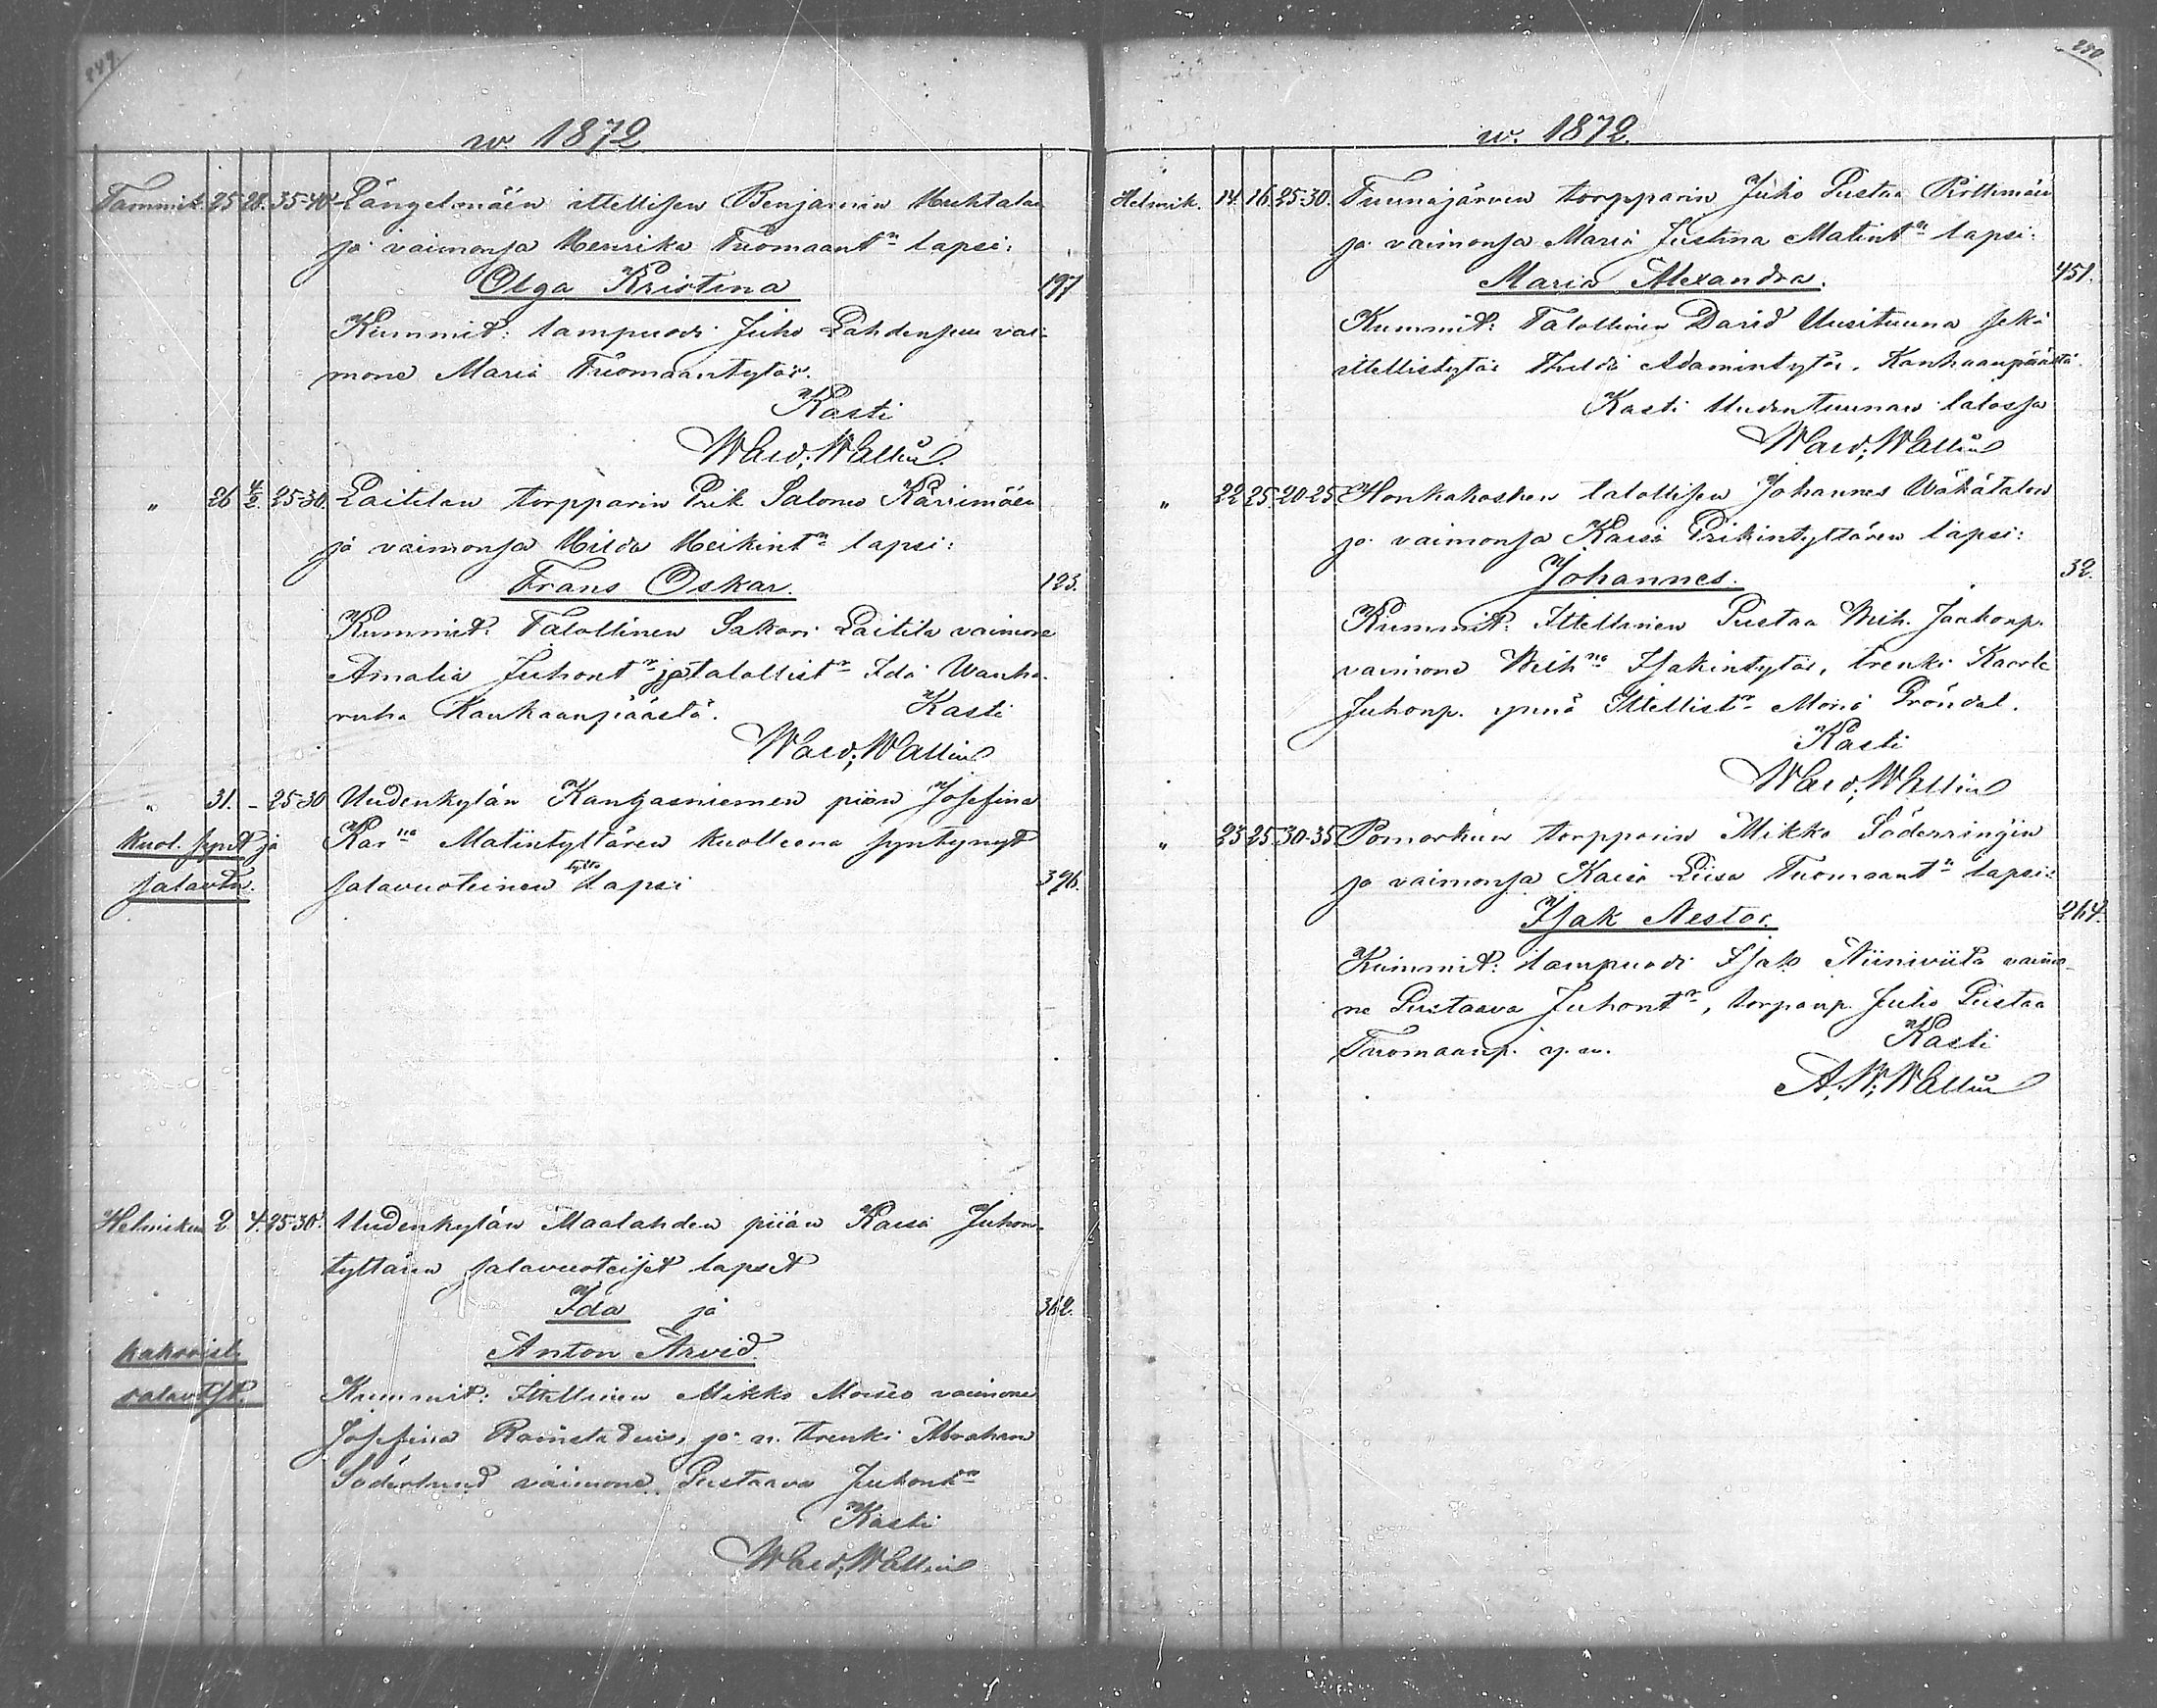 249.
w. 1872
Tammik. 25 28. 35-40. Längelmäen ittellisen Benjamin Huhtalan
ja vaimonsa Henrika Tuomaant:n lapsi:
Olga Kristina 197
Kummit: lampuodi Juho Lahdensuu vai-
mone Maria Tuomaantytär.
Kasti
Wald. Wallin.
" 26 4/2. 25-30. Laitilan torpparin Erik Salomo Karrimäen
ja vaimonsa Hilda Heikint:n lapsi:
Frans Oskar. 123.
Kummit: Talollinen Sakari Laitila vaimone
Amalia Juhont:r ja talollist:r Ida Wanha-
Kankaanpäästä. Kasti
Wald. Wallin
" 31. - 25-30 Uudenkylän Kantasniemen piian Josefina
kuol. synt ja Kar:na Matintyttären kuolleena syntynyt
salavtn. salavuoteinen tyttö lapsi 396.
Helmikuu 2. 4. 25-30. Uudenkylän Maalahden piian Kaisa Juhon-
tyttären salavuoteiset lapset
Ida ja 362.
kaksoist. Anton Arvid.
salavtst. Kummit: Ittellinen Mikko Moisio vaimone
Josefina ja n. trenki Abraham
Söderlund vaimone Kustaava Juhont:r
Kasti
Wald. Wallin
250
w. 1872.
Helmik. 14. 16. 25-30. Tuunajärven torpparin Juho Kustaa
ja vaimonsa Maria Justina Matint:n lapsi:
Maria Alexandra. 451.
Kummit: Talollinen David Uusituuna sekä
ittellistytär Hilda Adamintytär. Kankaanpäästä.
Kasti Uudentuunan talossa
Wald. Wallin
" 22 25. 20-25. Honkakosken talollisen Johannes Wäkätalon
ja vaimonsa Kaisa Erikintyttären lapsi:
Johannes. 32.
Kummit: Ittellinen Kustaa Wilh. Jaakonp.
vaimone Wilh:na Isakintytär, trenki Kaarle
Juhonp. ynnä Ittellist:r Maria Gröndal.
Kasti
Wald. Wallin
" 23 25. 30-35 Pomarkun torpparin Mikko Söderringin
ja vaimonsa Kaisa Liisa Tuomaant:n lapsi:
Isak Nestor. 264.
Kummit: lampuodi Isak Niiniviita vaimo-
ne Kustaava Juhont:r, torpanp. Juho Kustaa
Tuomaanp. y.m. Kasti
A. W. Wallin